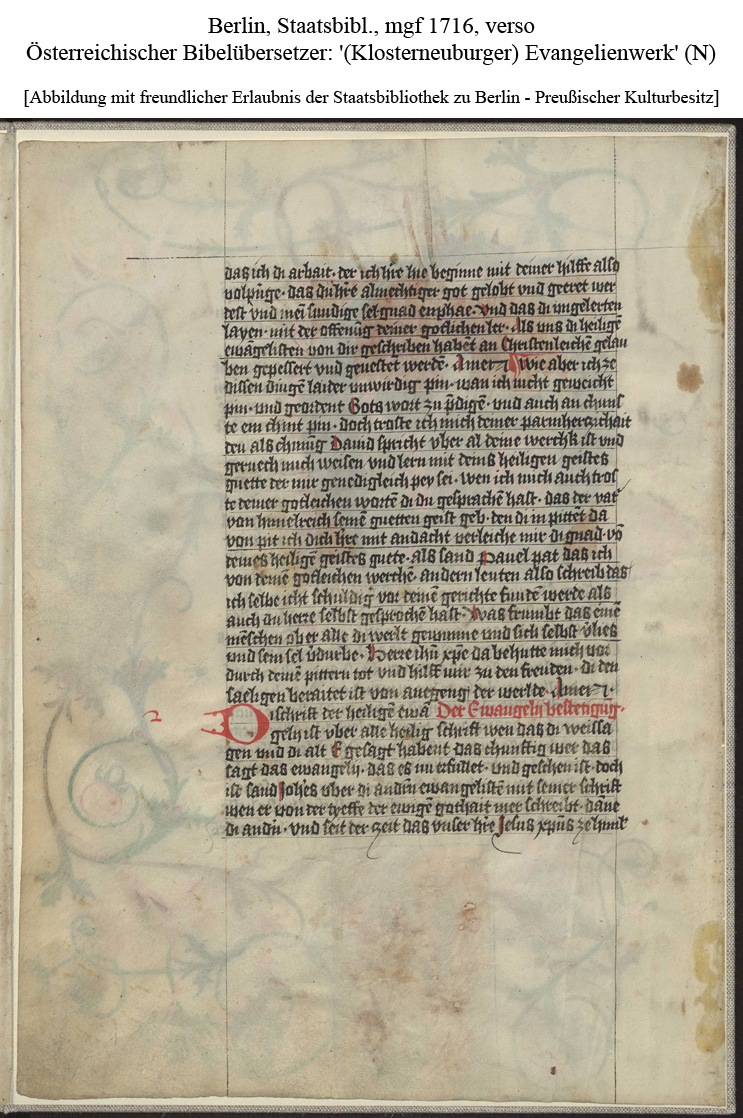 Berlin, Staatsbibl., mgf 1716, verso
Österreichischer Bibelübersetzer: '(Klosterneuburger) Evangelienwerk' (N)
[Abbildung mit freundlicher Erlaubnis der Staatsbibliothek zu Berlin - Preußischer Kulturbesitz]
das ich di arbait · der ich hre hie beginne mit deiner hilffe also
volpringe · das du hre almechtiger got gelobt vnd geeret wer
dest vnd mei sundige sel gnad enphae · vnd das di vngelerten
layen · mit der offenūg deiner gotlichen ler · Als vns di heiligē
ewāgelisten von dir geschriben habēt an Christenleichē gelau
ben gepessert vnd geuestet werdē · Amen Wie aber ich ze
dissen dingē laider vnwirdig pin · wan ich nicht geweicht
pin · vnd geordent Gots wort zu p̄digē · vnd auch an chuns
te ein chint pin · doch troste ich mich deiner parmherczichait
den als chunig Dauid spricht vber al deine werchk ist vnd
geruech mich weisen vnd lern mit deins heiligen geistes
guette der mir genedigleich pey sei · wen ich mich auch tros
te deiner gotleichen wortē di du gesprochē hast · das der vat
von himelreich seinē guetten geist geb · den di in pittēt da
von pit ich dich hre mit andacht verleiche mir di gnad · vō
deines heiligē geistes guete · als sand Pauel pat das ich
von deinē gotleichen werchē · andern leuten also schreib das
ich selbe icht schuldig vor deinē gerichte fundē werde als
auch du herre selbst gesprochē hast · Was frumbt das einē
mēschen ob er alle di werlt gewunne vnd sich selbst vlies
vnd sein sel v̄durbe · Herre ihū xp̄e da behutte mich vor
durch deinē pittern tot vnd hilff mir zu den freuden · di den
saeligen beraitet ist von anegengi der werlde · Amen
2 Di schrift der heiligē ewā Der Ewangelij bestetigūg ·
gelij ist vber alle heilig schrift wen das di weissa
gen vnd di alt E gesagt habent das chunftig wer das
sagt das ewangelij · das es nu erfullet · vnd geschen ist · doch
ist sand Johēs vber di andūn ewangelistē mit seiner schrift
wen er von der tyeffe der ewigē gothait mer schreibt · dāne
di andn̄ · vnd seit der zeit das vnser hre Jesus xpūs ze himl